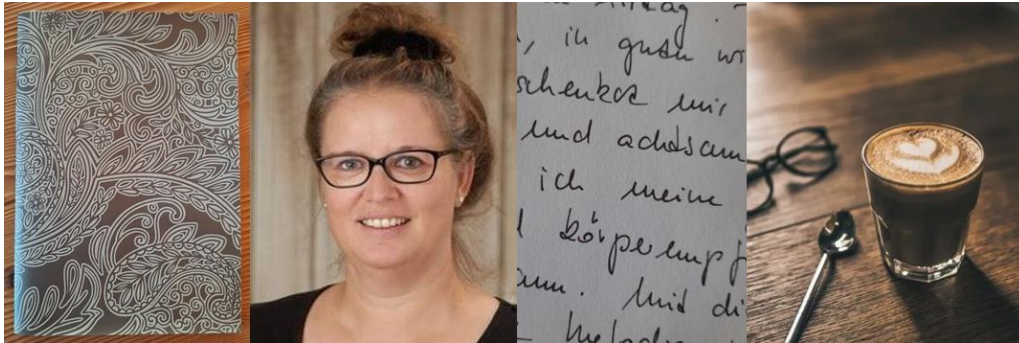 , in guten
schenkt mir
und achtsam
ich meine
körperempf
ann. Mit di